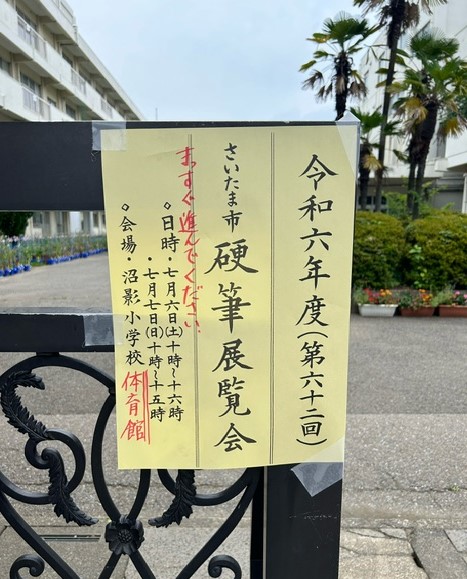 令和六年度(第六十二回)
さいたま市
硬筆展覧会
まっすぐ進んでください
◇日時・七月六日(土)十時〜十六時
・七月七日(日)十時〜十五時
◇会場・沼影小学校体育館